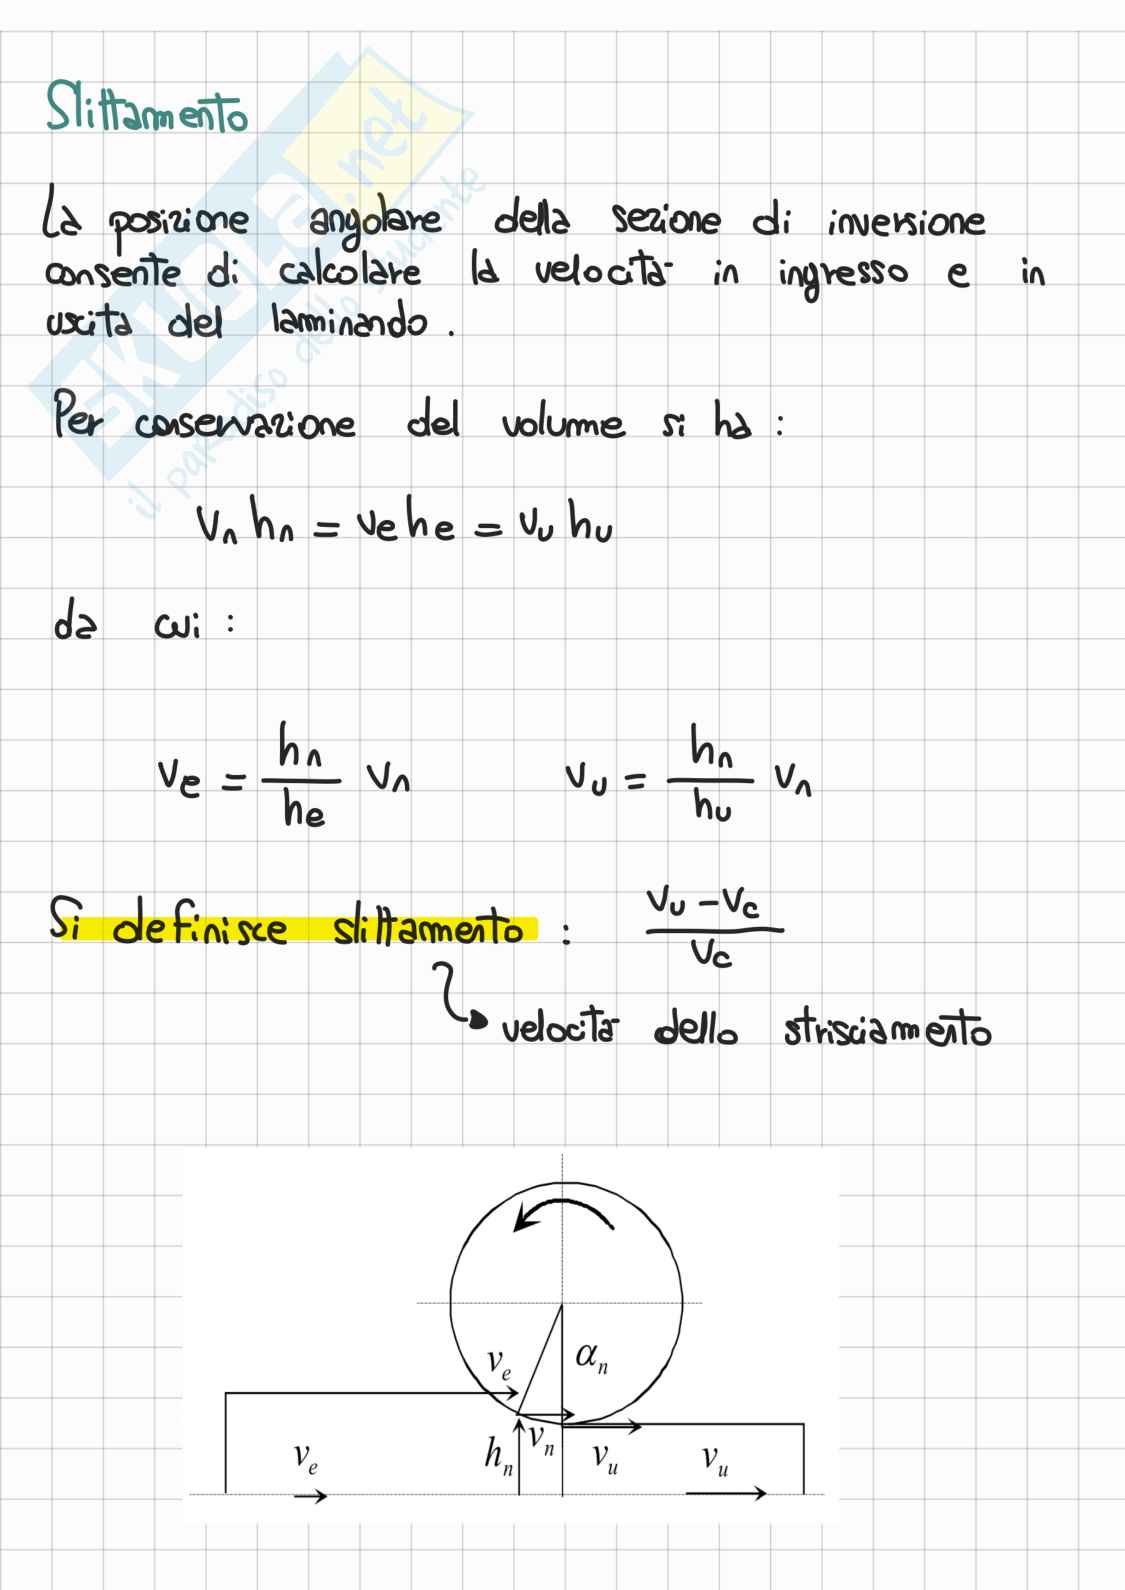 Slittamento
La posizione angolare della sezione di inversione
consente di calcolare la velocità in ingresso e in
uscita del laminando.
Per conservazione del volume si ha:
vₙ hₙ = vₑ hₑ = vᵤ hᵤ
da cui:
vₑ = hₙ/hₑ vₙ vᵤ = hₙ/hᵤ vₙ
Si definisce slittamento: (vᵤ - v_c)/v_c
velocità dello strisciamento
vₑ αₙ
vₑ hₙ vₙ vᵤ vᵤ
SKUOLA.net
il paradiso dello studente